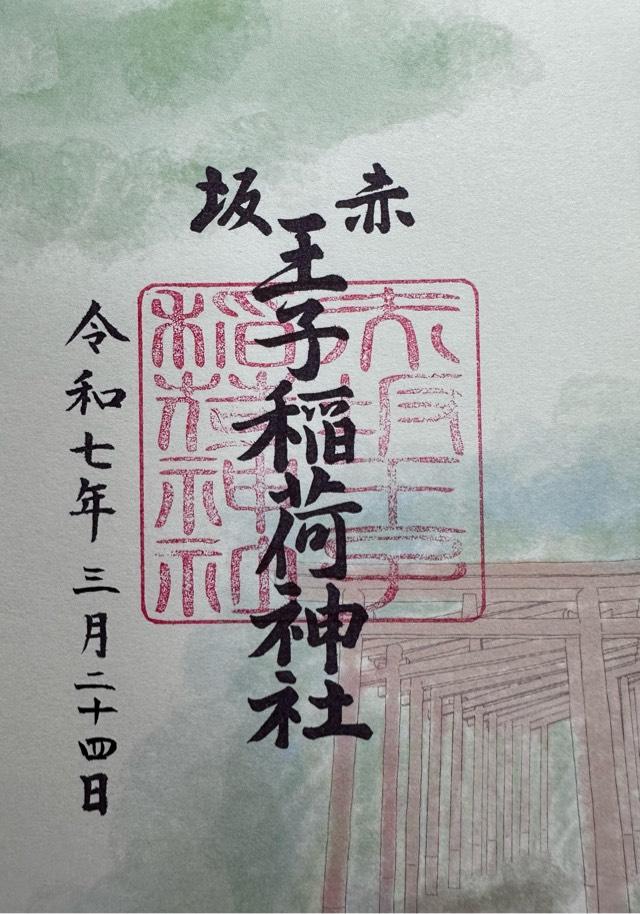 赤坂
王子稲荷神社
令和七年三月二十四日
赤坂王子
稲荷神社